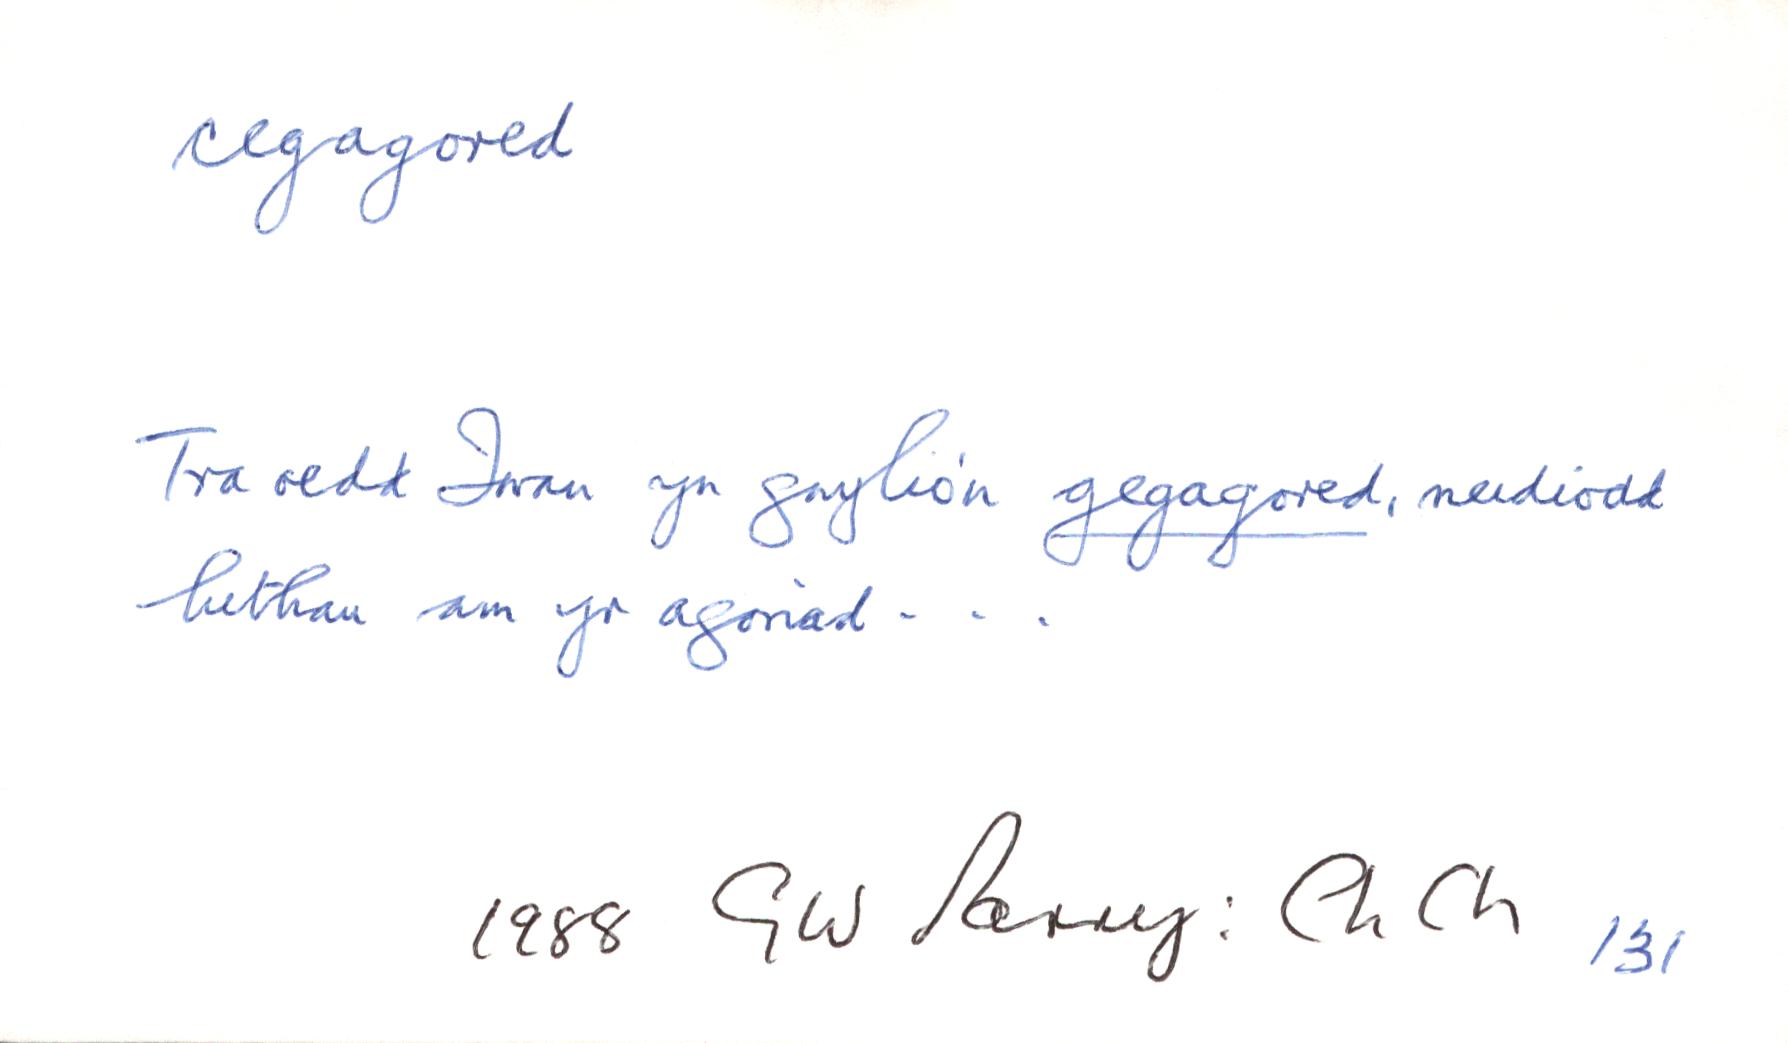 cegagored
Tra oedd Iwan yn gwylio'n gegagored, neidiodd
Bethan am yr agoriad . . .
1988 GW Parry: Ch Ch 131